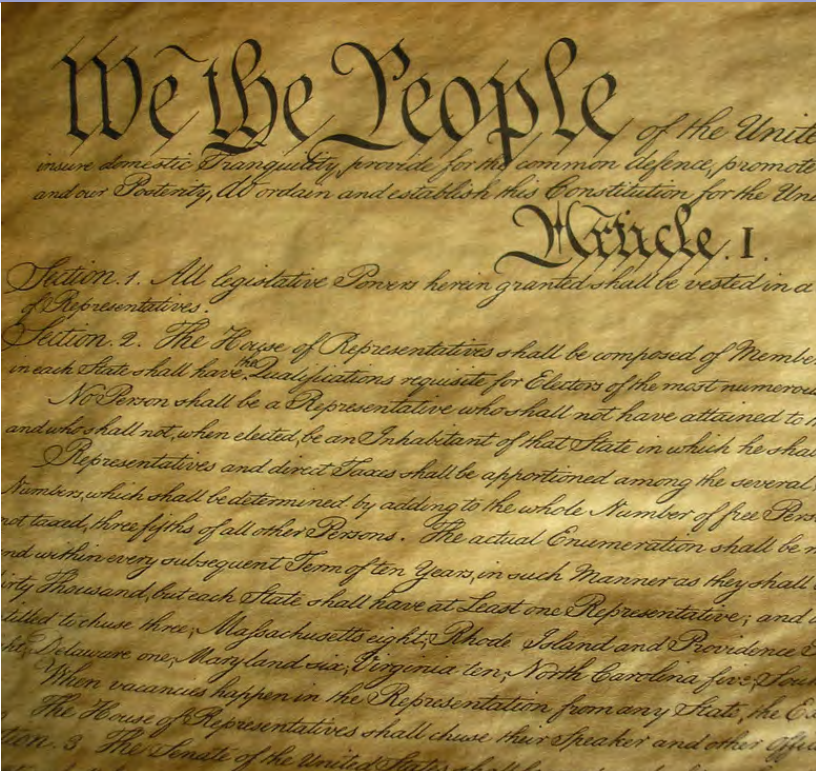 We the People of the Unite
insure domestic Tranquility, provide for the common defence, promote
and our Posterity, do ordain and establish this Constitution for the Uni
Article. I.
Section. 1. All legislative Powers herein granted shall be vested in a
of Representatives.
Section. 2. The House of Representatives shall be composed of Membe
in each State shall have the Qualifications requisite for Electors of the most numerou
No Person shall be a Representative who shall not have attained to
and who shall not, when elected, be an Inhabitant of that State in which he shal
Representatives and direct Taxes shall be apportioned among the several
Numbers, which shall be determined by adding to the whole Number of free Pers
not taxed, three fifths of all other Persons. The actual Enumeration shall be
nd within every subsequent Term of ten Years, in such Manner as they shall
irty Thousand, but each State shall have at Least one Representative; and
titled to chuse three, Massachusetts eight, Rhode Island and Providence
ht, Delaware one, Maryland six, Virginia ten, North Carolina five, Sou
When vacancies happen in the Representation from any State, the Ex
The House of Representatives shall chuse their Speaker and other Offic
tion. 3 The Senate of the United States shall be